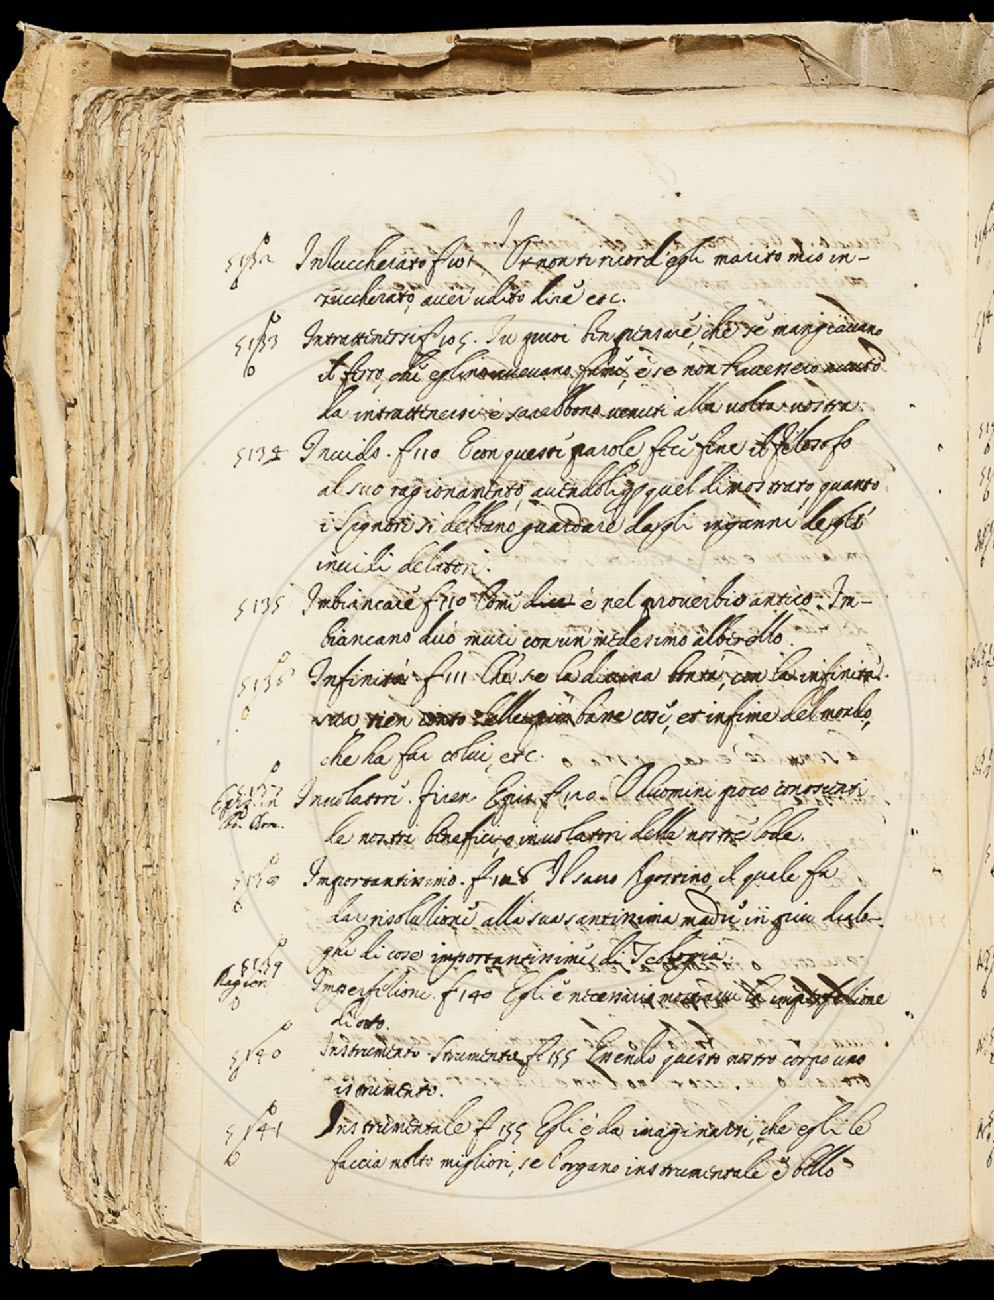 I
5132 Inzuccherato f 101 Or non ti ricord'egli marito mio in-
zuccherato, aver udito dire etc.
5133 Intrattenersi f 105. Tu puoi ben pensare, che se mangiavano
il ferro, che egli non avevano fame, e se non havessero avuto
da intrattenersi e sarebbono venuti alla volta vostra.
5134 Invido. f 110 E con questi parole feci fine il filosofo
al suo ragionamento, avendoli quel dimostrato, quanto
i Signori si debbano guardare dagli inganni degli
invidi delatori.
5135 Imbiancare f 110 Come è nel proverbio antico. Im-
biancano duo muri con un medesimo alberello.
5136 Infinità f 111 Che se la divina bontà, con la infinità
sua, tien conto delle più basse cose, et infime del mondo,
che ha far colui, etc.
5137 Involatori. Firen. Epis. f 120. O huomini poco conoscenti
de nostri benefici, o involatori della nostre lode.
5138 Importantissimo. f 128 Il savo Agostino, il quale fa
dar risolutione alla sua santissima madre in più dialo-
ghi di cose importantissime di Teologia.
5139
Ragion Imperfetione. f 140 Egli è necessario la imperfetione
di otto.
5140 Instrumento Strumento f 155 Essendo questo nostro corpo uno
istrumento.
5141 Instrumentale f 155 Egli è da imaginarsi, che egli le
faccia molto migliori, se l'organo instrumentale è bello